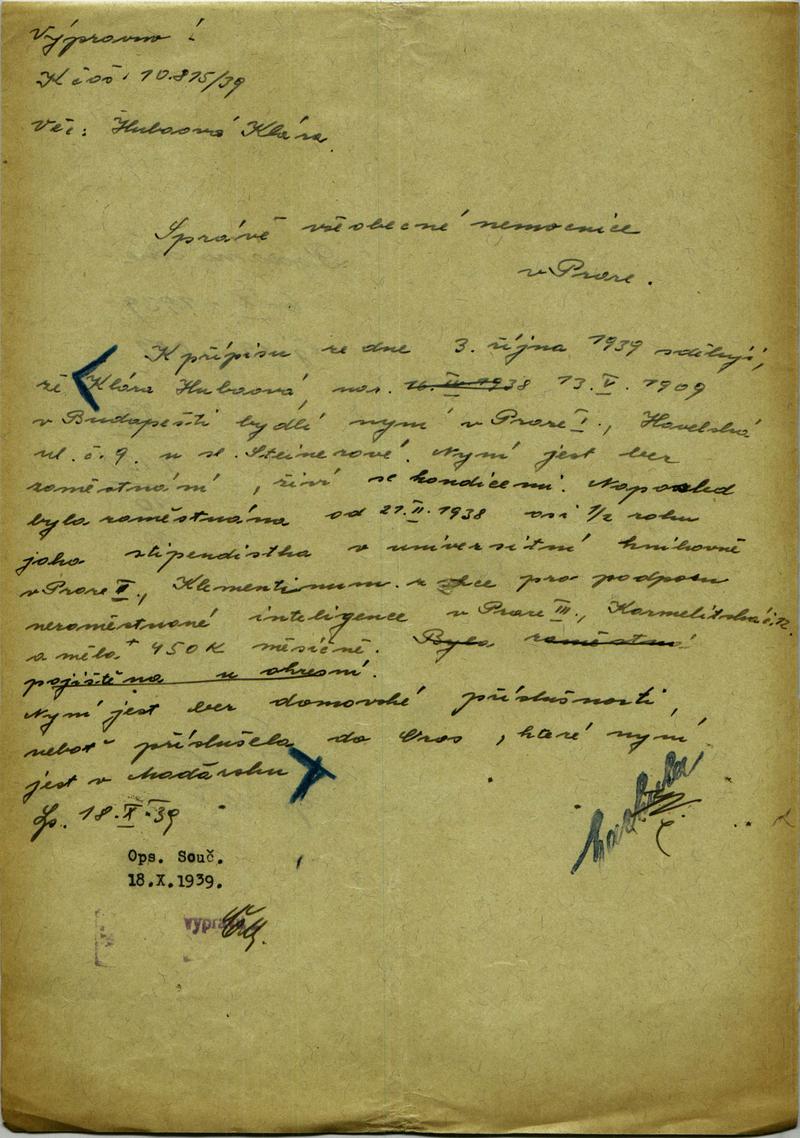 Výpravno!
K čís: 10.815/39
Věc: Hubaová Klára.
Správě všeobecné nemocnice
v Praze.
K přípisu ze dne 3. října 1939 sděluji,
že Klára Hubaová, nar. 13. V. 1909
v Budapešti bydlí nyní v Praze I., Havelská
ul. č. 9. u sl. Steinerové. Nyní jest bez
zaměstnání, živí se kondicemi. Naposled
byla zaměstnána od 21. II. 1938 asi 1/2 roku
jako stipendistka v universitní knihovně
v Praze II., Klementinum. z akce pro podporu
nezaměstnané inteligence v Praze III., Karmelitská č. 12.
a měla 450 K měsíčně. Byla
pojištěna u okresní.
Nyní jest bez domovské příslušnosti,
neboť příslušela do Oros, které nyní
jest v Maďarsku
18. X. 39
Ops. Souč.
18.X.1939.